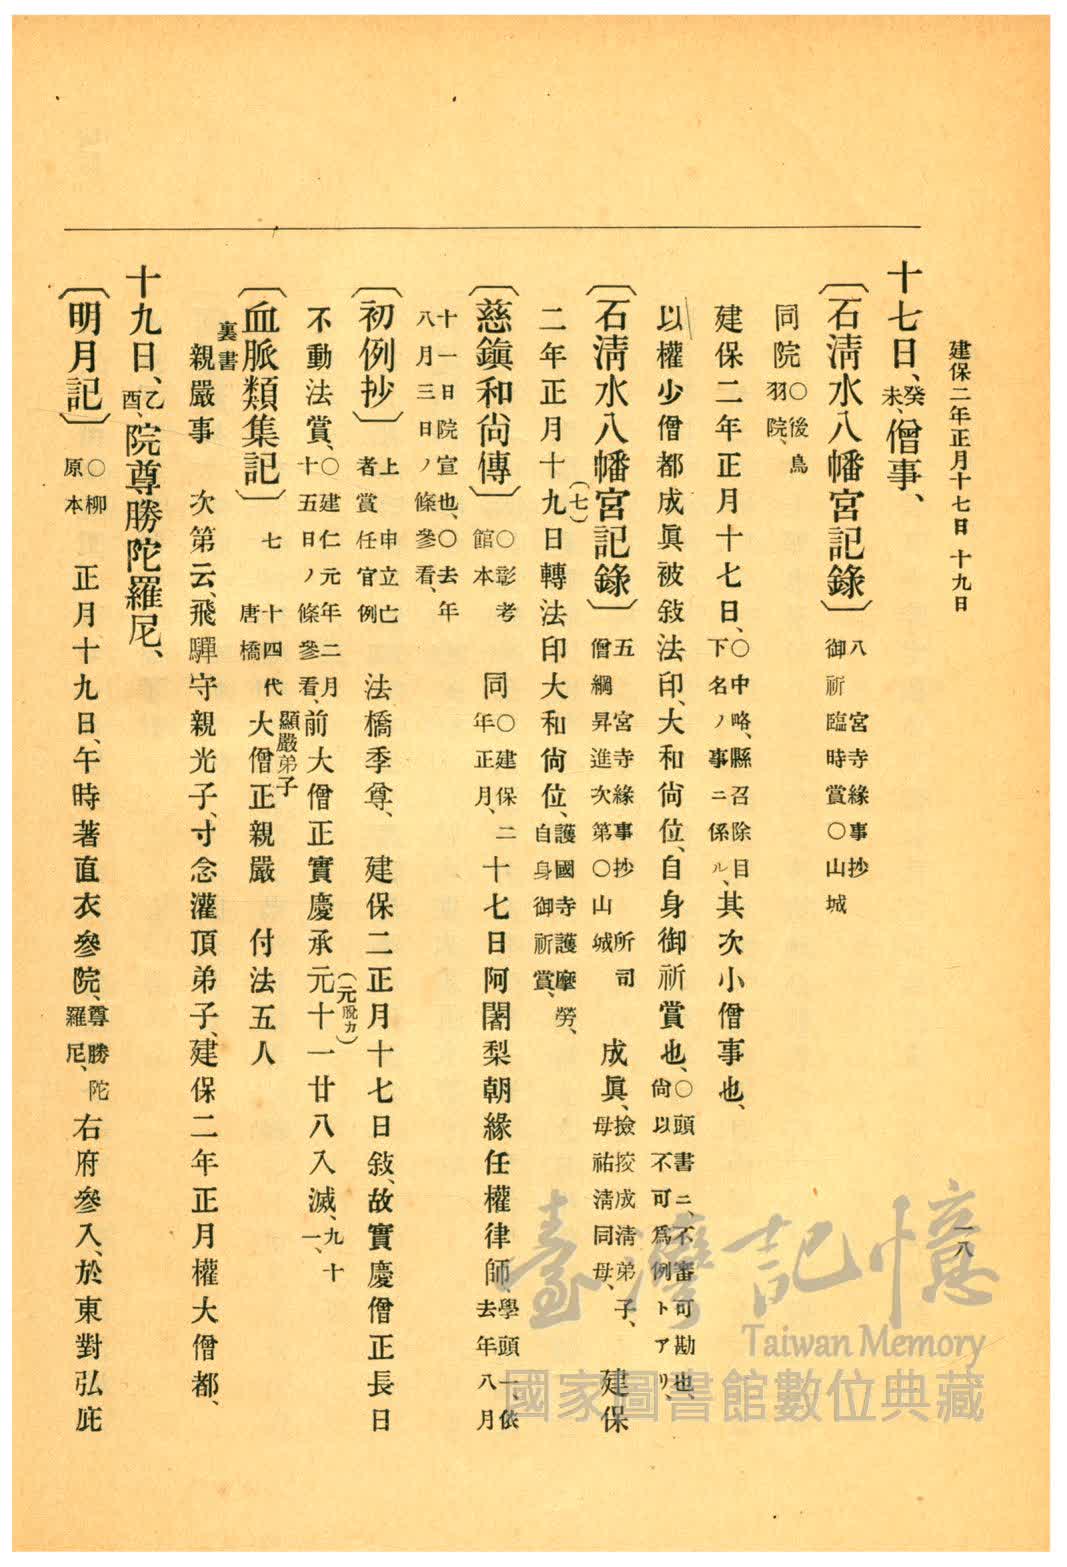 建保二年正月十七日 十九日
一八
十七日、癸未、僧事、
〔石清水八幡宮記錄〕 八 宮寺緣事抄 御祈 臨時賞〇山城
同院〇後鳥羽院、
建保二年正月十七日、〇中略、縣召除目下名ノ事ニ係ル、其次小僧事也、
以權少僧都成眞被敍法印、大和尙位、自身御祈賞也、〇頭書ニ、不審可勘也、尙以不可爲例トアリ、
〔石清水八幡宮記錄〕 五 宮寺緣事抄 所司僧綱昇進次第〇山城 成眞、撿挍成淸弟子、母祐淸同母、 建保
二年正月十九(七)日轉法印大和尙位、護國寺護摩勞、自身御祈賞、
〔慈鎭和尙傳〕 〇彰考館本 同〇建保二年正月、十七日阿闍梨朝緣任權律師、學頭一、依去年八月
十一日院宣也、〇去年八月三日ノ條參看、
〔初例抄〕 上 申立亡者賞任官例 法橋季尊、 建保二正月十七日敍、故實慶僧正長日
不動法賞、〇建仁元年二月十五日ノ條參看、前大僧正實慶承元(元脫カ)十一廿八入滅、九十一、
〔血脈類集記〕 七 十四代唐橋 大僧正親嚴 顯嚴弟子 付法五人
裏書 親嚴事 次第云、飛驒守親光子、寸念灌頂弟子、建保二年正月權大僧都、
十九日、乙酉、院尊勝陀羅尼、
〔明月記〕 〇柳原本 正月十九日、午時著直衣參院、尊勝陀羅尼、右府參入、於東對弘庇
臺灣記憶
Taiwan Memory
國家圖書館數位典藏